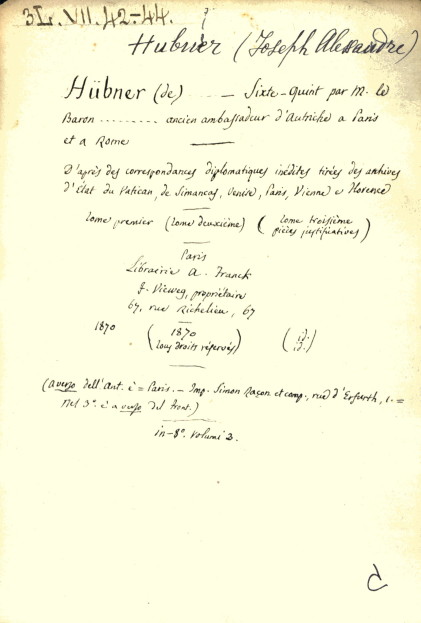 3L. VII. 42-44.
Hübner (Joseph Alexandre)
Hübner (de) ..... — Sixte-Quint par M. le
Baron ......... ancien ambassadeur d'Autriche a Paris
et a Rome
D'après des correspondances diplomatiques inédites tirées des archives
d'État du Vatican, de Simancas, Venise, Paris, Vienne e Florence
Tome premier (Tome deuxième) ( Tome troisième
pièces justificatives )
Paris
Librairie A. Franck
F. Vieweg, propriétaire
67, rue Richelieu, 67
1870 ( 1870 (id.
Tous droits réservés) id.)
(a verso dell'Ant. è = Paris. — Imp. Simon Raçon et comp., rue d'Erfurth, 1. =
Nel 3º. è a verso del front.)
in-8º. volumi 3.